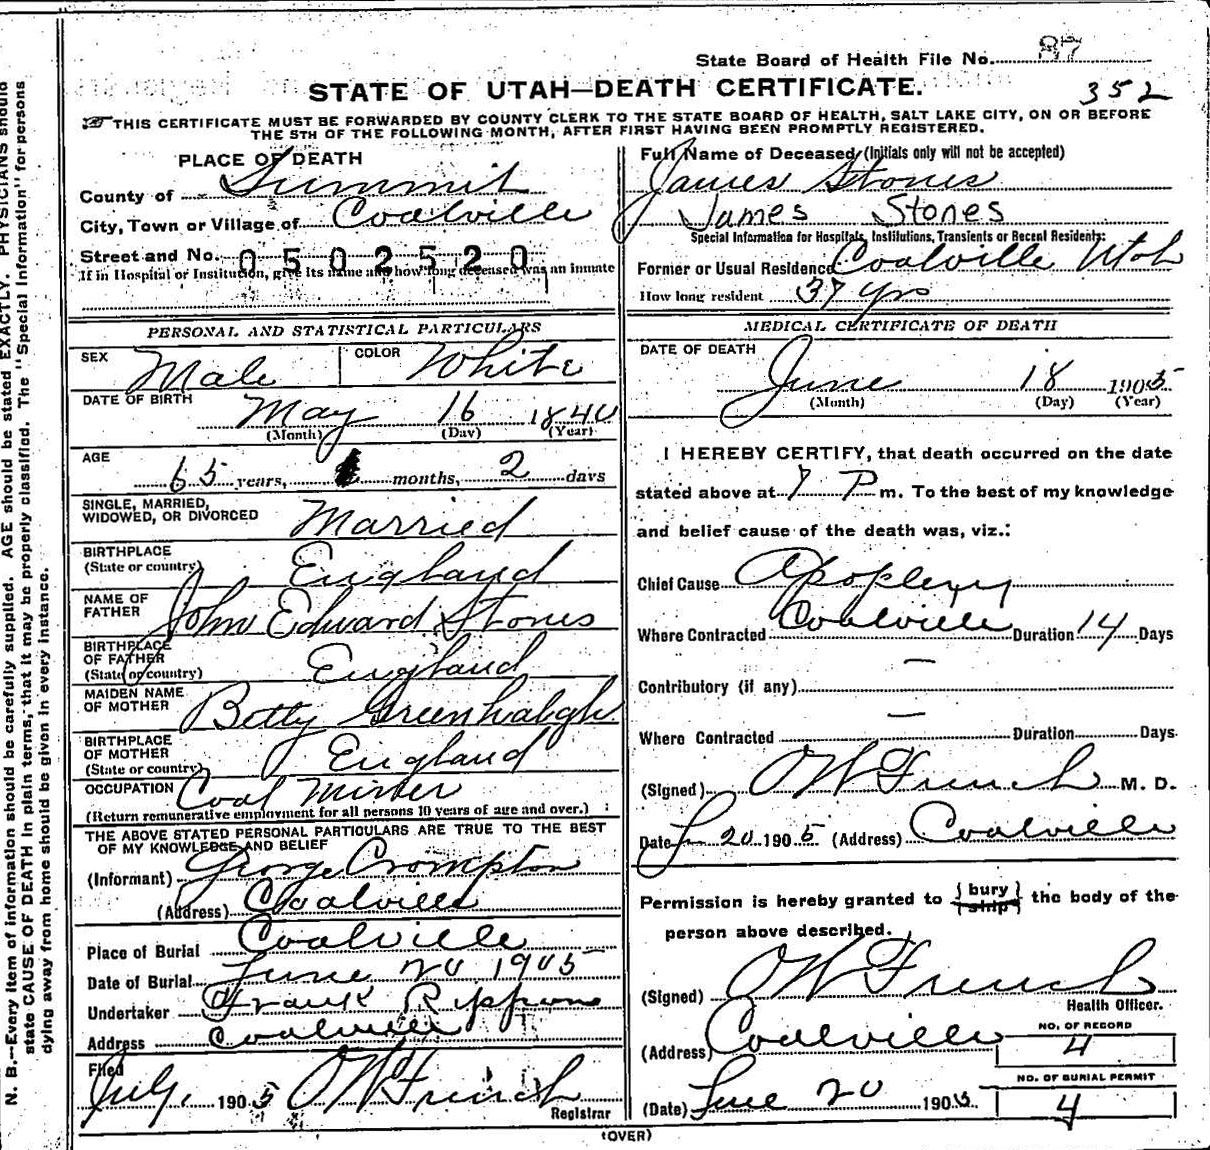 State Board of Health File No. 87
352
STATE OF UTAH—DEATH CERTIFICATE.
THIS CERTIFICATE MUST BE FORWARDED BY COUNTY CLERK TO THE STATE BOARD OF HEALTH, SALT LAKE CITY, ON OR BEFORE
THE 5TH OF THE FOLLOWING MONTH, AFTER FIRST HAVING BEEN PROMPTLY REGISTERED.
N. B.—Every item of information should be carefully supplied. AGE should be stated EXACTLY. PHYSICIANS should
state CAUSE OF DEATH in plain terms, that it may be properly classified. The "Special Information" for persons
dying away from home should be given in every instance.
PLACE OF DEATH
County of Summit
City, Town or Village of Coalville
Street and No. 0502520
If in Hospital or Institution, give its name and how long deceased was an inmate
PERSONAL AND STATISTICAL PARTICULARS
SEX Male COLOR White
DATE OF BIRTH May 16 1840
(Month) (Day) (Year)
AGE 65 years, months, 2 days
SINGLE, MARRIED,
WIDOWED, OR DIVORCED Married
BIRTHPLACE
(State or country) England
NAME OF
FATHER John Edward Stones
BIRTHPLACE
OF FATHER
(State or country) England
MAIDEN NAME
OF MOTHER Betty Greenhalgh
BIRTHPLACE
OF MOTHER
(State or country) England
OCCUPATION Coal Miner
(Return remunerative employment for all persons 10 years of age and over.)
THE ABOVE STATED PERSONAL PARTICULARS ARE TRUE TO THE BEST
OF MY KNOWLEDGE AND BELIEF
(Informant) George Crompton
(Address) Coalville
Place of Burial Coalville
Date of Burial June 20 1905
Undertaker Frank Rippon
Address Coalville
Filed
July, 1905 OW French
Registrar
Full Name of Deceased (Initials only will not be accepted)
James Stones
James Stones
Special Information for Hospitals, Institutions, Transients or Recent Residents:
Former or Usual Residence Coalville Utah
How long resident 37 yrs
MEDICAL CERTIFICATE OF DEATH
DATE OF DEATH
June 18 1905
(Month) (Day) (Year)
I HEREBY CERTIFY, that death occurred on the date
stated above at 7 P m. To the best of my knowledge
and belief cause of the death was, viz.:
Chief Cause Apoplexy
Where Contracted Coalville Duration 14 Days
Contributory (if any) —
Where Contracted — Duration Days
(Signed) OW French M. D.
Date 20 1905 (Address) Coalville
Permission is hereby granted to {bury ship} the body of the
person above described.
(Signed) OW French
Health Officer.
(Address) Coalville
NO. OF RECORD
4
NO. OF BURIAL PERMIT
4
(Date) June 20 1905
(OVER)